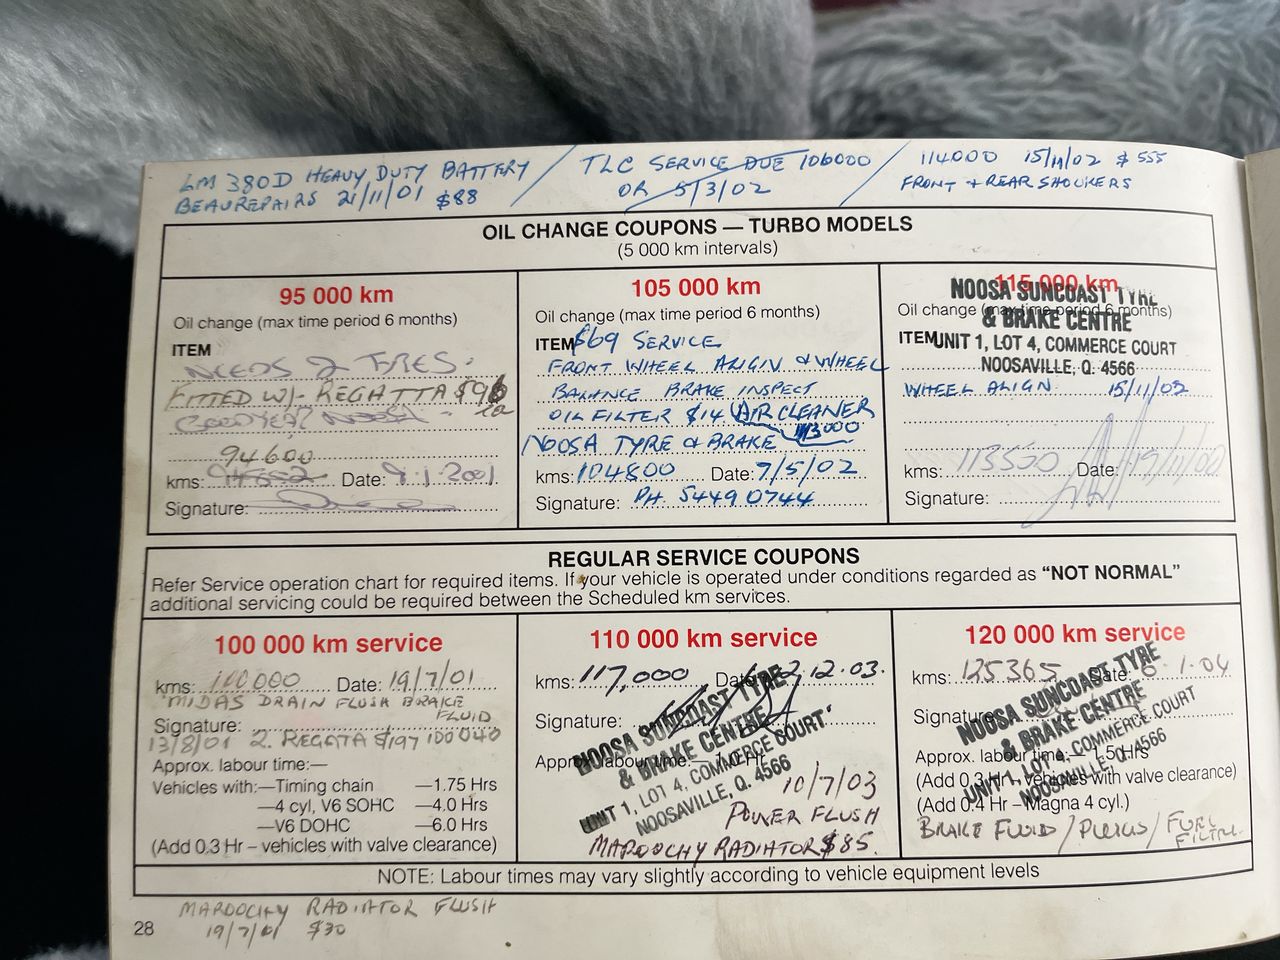 LM 380D HEAVY DUTY BATTERY / TLC SERVICE DUE 106000 / 114000 15/11/02 $555
BEAUREPAIRS 21/11/01 $88 OR 5/3/02 FRONT + REAR SHOCKERS
OIL CHANGE COUPONS — TURBO MODELS
(5 000 km intervals)
95 000 km
Oil change (max time period 6 months)
ITEM
NEEDS 2 TYRES.
FITTED W/- REGATTA $96
GOODYEAR NOOSA
94600
kms: Date: 9.1.2001
Signature:
105 000 km
Oil change (max time period 6 months)
ITEM $69 SERVICE
FRONT WHEEL ALIGN & WHEEL
BALANCE BRAKE INSPECT
OIL FILTER $14 AIR CLEANER
113000
NOOSA TYRE & BRAKE
kms: 104800 Date: 7/5/02
Signature: PH. 5449 0744
115 000 km
NOOSA SUNCOAST TYRE
Oil change (max time period 6 months)
& BRAKE CENTRE
ITEM UNIT 1, LOT 4, COMMERCE COURT
NOOSAVILLE, Q. 4566
WHEEL ALIGN 15/11/02
kms: 113500 Date:
Signature:
REGULAR SERVICE COUPONS
Refer Service operation chart for required items. If your vehicle is operated under conditions regarded as “NOT NORMAL”
additional servicing could be required between the Scheduled km services.
100 000 km service
kms: 100000 Date: 19/7/01
MIDAS DRAIN FLUSH BRAKE
FLUID
Signature:
13/8/01 2. REGATA $197 100040
Approx. labour time:—
Vehicles with:—Timing chain —1.75 Hrs
—4 cyl, V6 SOHC —4.0 Hrs
—V6 DOHC —6.0 Hrs
(Add 0.3 Hr – vehicles with valve clearance)
110 000 km service
kms: 117,000 Date: 2.12.03.
Signature:
NOOSA SUNCOAST TYRE
& BRAKE CENTRE
UNIT 1, LOT 4, COMMERCE COURT
NOOSAVILLE, Q. 4566
Approx. labour time:
10/7/03
POWER FLUSH
MAROOCHY RADIATOR $85.
120 000 km service
kms: 125365 Date: 1.04
Signature:
NOOSA SUNCOAST TYRE
& BRAKE CENTRE
UNIT 1, LOT 4, COMMERCE COURT
NOOSAVILLE, Q. 4566
Approx. labour time: 1.50 Hrs
(Add 0.3 Hr – vehicles with valve clearance)
(Add 0.4 Hr – Magna 4 cyl.)
BRAKE FLUID / PLUGS / FUEL
FILTER
NOTE: Labour times may vary slightly according to vehicle equipment levels
MAROOCHY RADIATOR FLUSH
28 19/7/01 $30